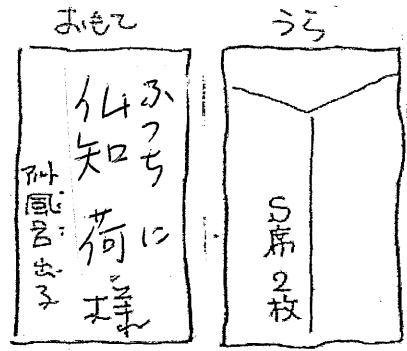 おもて
ふつち に
仏知 荷 様
風呂
うら
S席2枚